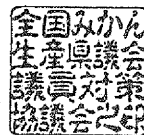 全国みかん
生産県議会
議員対策
協議会之印